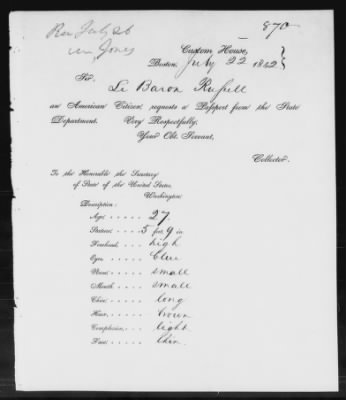 Rec July 26
870
Wm Jones
Custom House,
Boston, July 22 1842
Sir,
Le Baron Russell
an American Citizen, requests a Passport from the State
Department. Very Respectfully,
Your Obt. Servant,
Collector.
To the Honorable the Secretary
of State of the United States,
Washington
Description:
Age, . . . . . 27.
Stature, . . . . . 5 feet 9 in
Forehead, . . . . high
Eyes, . . . . . blue
Nose, . . . . . small
Mouth, . . . . small
Chin, . . . . . long
Hair, . . . . . brown
Complexion, . . . . light
Face, . . . . . thin.